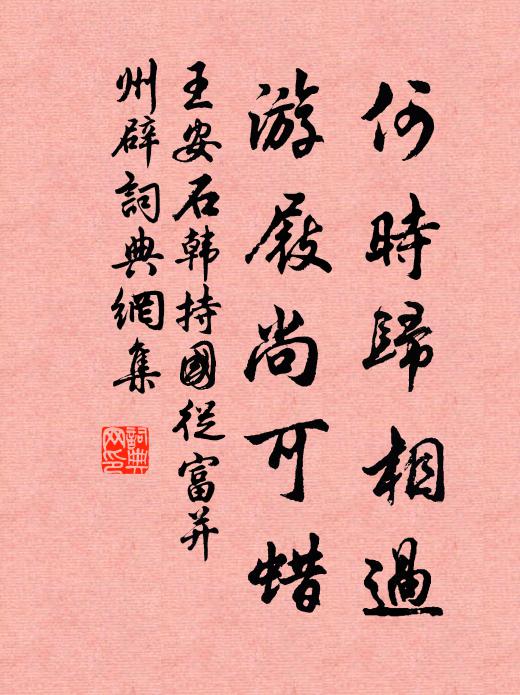 何時歸相過
游屐尚可蜡
王安石韩持國從富并
州辟詞典網集
詞典
网印